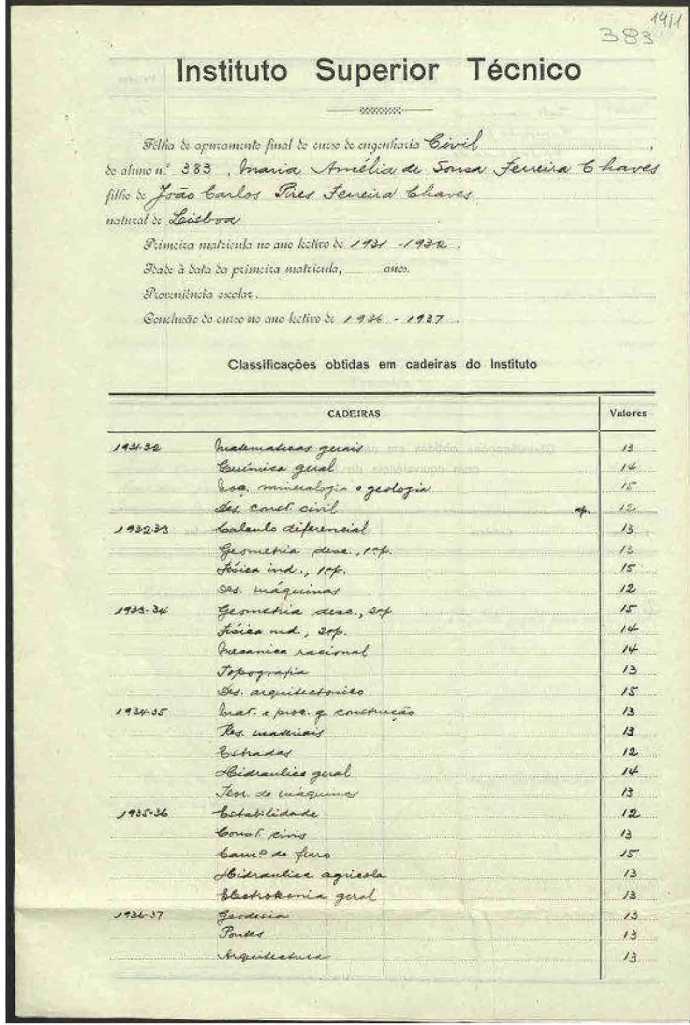 1411
383
Instituto Superior Técnico
Fôlha de apuramento final do curso de engenharia Civil,
do aluno n.º 383, Maria Amélia de Sousa Ferreira Chaves
filho de João Carlos Pires Ferreira Chaves
natural de Lisboa
Primeira matrícula no ano lectivo de 1931-1932.
Idade à data da primeira matrícula, anos.
Proveniência escolar.
Conclusão do curso no ano lectivo de 1936-1937.
Classificações obtidas em cadeiras do Instituto
CADEIRAS Valores
1931-32 Matematicas gerais 13
Química geral 14
mineralogia e geologia 15
Des. const. civil 12
1932-33 Calculo diferencial 13
Geometria desc., 1ª p. 13
Física ind., 1ª p. 15
Des. máquinas 12
1933-34 Geometria desc., 2ª p. 15
Física ind., 2ª p. 14
Mecanica racional 14
Topografia 13
Des. arquitectonico 15
1934-35 Mat. e proc. g. construção 13
Res. materiais 13
Estradas 12
Hidraulica geral 14
Teor. de máquinas 13
1935-36 Estabilidade 12
Const. civis 13
Camº de ferro 15
Hidraulica agricola 13
Electrotecnia geral 13
1936-37 Geodesia 13
Pontes 13
Arquitectura 13